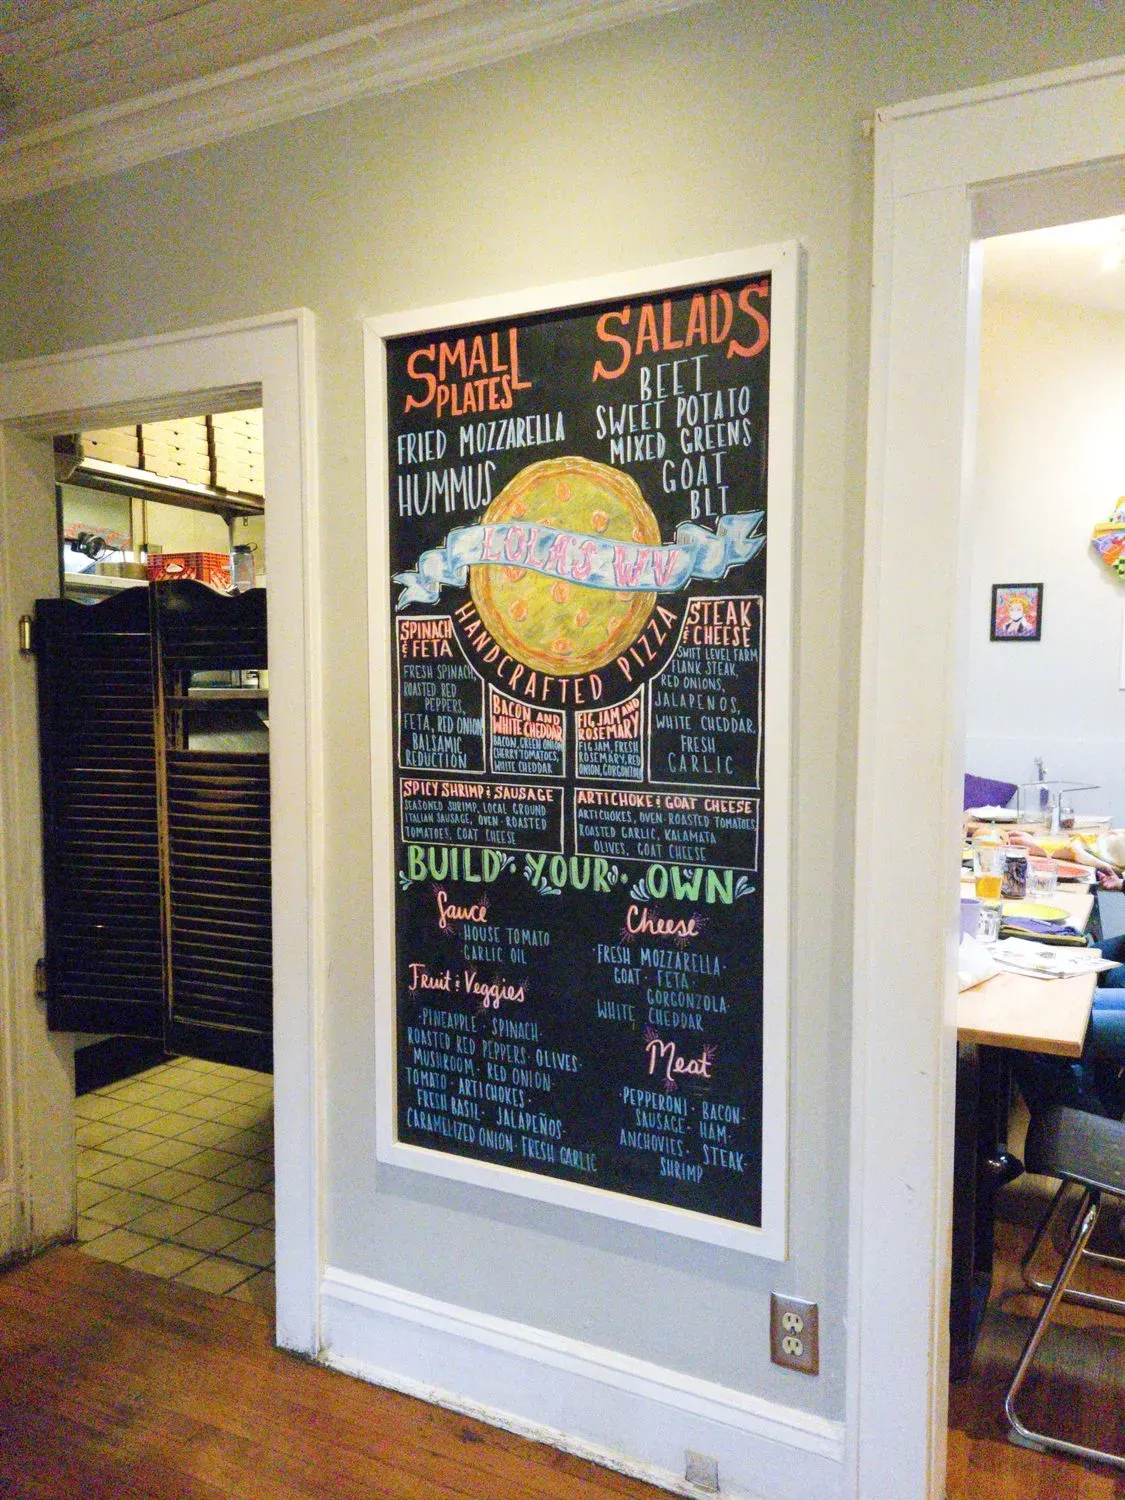 SMALL
PLATES
FRIED MOZZARELLA
HUMMUS
SALADS
BEET
SWEET POTATO
MIXED GREENS
GOAT
BLT
LOLA'S WV
HANDCRAFTED PIZZA
SPINACH
& FETA
FRESH SPINACH,
ROASTED RED
PEPPERS,
FETA, RED ONION
BALSAMIC
REDUCTION
BACON AND
WHITE CHEDDAR
BACON, GREEN ONION
CHERRY TOMATOES,
WHITE CHEDDAR
FIG JAM AND
ROSEMARY
FIG JAM, FRESH
ROSEMARY, RED
ONION, GORGONZOLA
STEAK
& CHEESE
SWIFT LEVEL FARM
FLANK STEAK,
RED ONIONS,
JALAPEÑOS,
WHITE CHEDDAR,
FRESH
GARLIC
SPICY SHRIMP & SAUSAGE
SEASONED SHRIMP, LOCAL GROUND
ITALIAN SAUSAGE, OVEN-ROASTED
TOMATOES, GOAT CHEESE
ARTICHOKE & GOAT CHEESE
ARTICHOKES, OVEN-ROASTED TOMATOES
ROASTED GARLIC, KALAMATA
OLIVES, GOAT CHEESE
BUILD · YOUR · OWN
Sauce
HOUSE TOMATO
GARLIC OIL
Fruit & Veggies
·PINEAPPLE · SPINACH·
ROASTED RED PEPPERS· OLIVES·
MUSHROOM · RED ONION·
TOMATO · ARTICHOKES ·
FRESH BASIL · JALAPEÑOS·
CARAMELIZED ONION· FRESH GARLIC
Cheese
·FRESH MOZZARELLA·
GOAT · FETA ·
GORGONZOLA·
WHITE CHEDDAR
Meat
·PEPPERONI · BACON·
SAUSAGE · HAM·
ANCHOVIES · STEAK·
SHRIMP